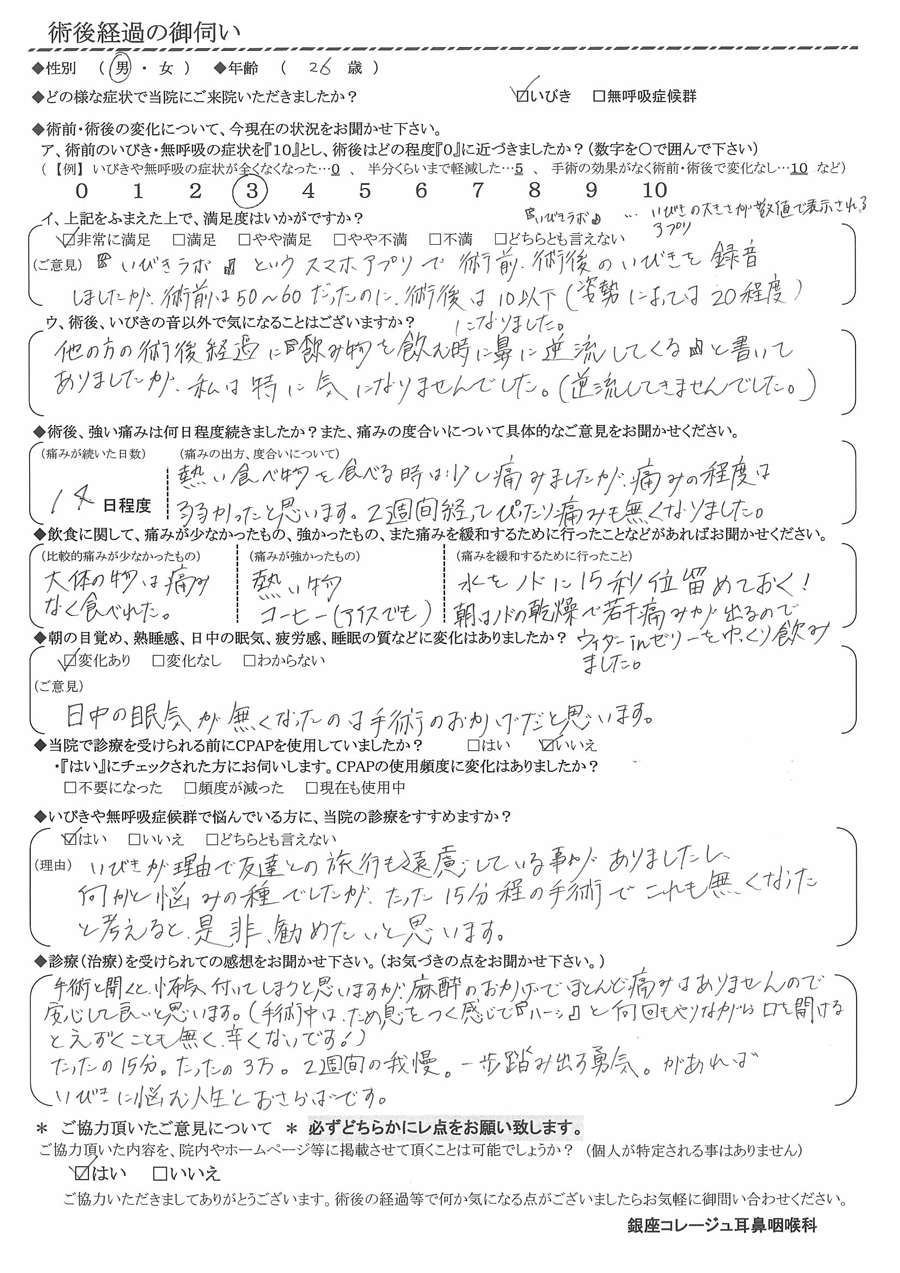 術後経過の御伺い
◆性別 ( 男 ・ 女 ) ◆年齢 ( 26 歳 )
◆どの様な症状で当院にご来院いただきましたか? ☑いびき □無呼吸症候群
◆術前・術後の変化について、今現在の状況をお聞かせ下さい。
ア、術前のいびき・無呼吸の症状を『10』とし、術後はどの程度『0』に近づきましたか?(数字を○で囲んで下さい)
(【例】いびきや無呼吸の症状が全くなくなった…0 、 半分くらいまで軽減した…5 、 手術の効果がなく術前・術後で変化なし…10 など)
0 1 2 3 4 5 6 7 8 9 10
イ、上記をふまえた上で、満足度はいかがですか?
『いびきラボ』 … いびきの大きさが数値で表示される
アプリ
☑非常に満足 □満足 □やや満足 □やや不満 □不満 □どちらとも言えない
(ご意見) 『いびきラボ』というスマホアプリで術前、術後のいびきを録音
しましたが、術前は50~60だったのに、術後は10以下(姿勢によっては20程度)
になりました。
ウ、術後、いびきの音以外で気になることはございますか?
他の方の術後経過に『飲み物を飲む時に鼻に逆流してくる』と書いて
ありましたが、私は特に気になりませんでした。(逆流してきませんでした。)
◆術後、強い痛みは何日程度続きましたか?また、痛みの度合いについて具体的なご意見をお聞かせください。
(痛みが続いた日数) (痛みの出方、度合いについて)
14 日程度
熱い食べ物を食べる時は少し痛みましたが、痛みの程度は
弱かったと思います。2週間経ってぴったり痛みも無くなりました。
◆飲食に関して、痛みが少なかったもの、強かったもの、また痛みを緩和するために行ったことなどがあればお聞かせください。
(比較的痛みが少なかったもの) (痛みが強かったもの) (痛みを緩和するために行ったこと)
大体の物は痛み
なく食べれた。
熱い物
コーヒー(アイスでも)
水をノドに15秒位留めておく!
朝はノドの乾燥で若干痛みが出るので
ウィダーinゼリーをゆっくり飲み
ました。
◆朝の目覚め、熟睡感、日中の眠気、疲労感、睡眠の質などに変化はありましたか?
☑変化あり □変化なし □わからない
(ご意見)
日中の眠気が無くなったのは手術のおかげだと思います。
◆当院で診療を受けられる前にCPAPを使用していましたか? □はい ☑いいえ
・『はい』にチェックされた方にお伺いします。CPAPの使用頻度に変化はありましたか?
□不要になった □頻度が減った □現在も使用中
◆いびきや無呼吸症候群で悩んでいる方に、当院の診療をすすめますか?
☑はい □いいえ □どちらとも言えない
(理由) いびきが理由で友達との旅行も遠慮している事がありましたし、
何かと悩みの種でしたが、たった15分程の手術でこれも無くなった
と考えると、是非、勧めたいと思います。
◆診療(治療)を受けられての感想をお聞かせ下さい。(お気づきの点をお聞かせ下さい。)
手術と聞くと、怖気付いてしまうと思いますが、麻酔のおかげでほとんど痛みはありませんので
安心して良いと思います。(手術中は、ため息をつく感じで『ハーッ』と何回もやりながら口を開ける
とえずくことも無く、辛くないです!)
たったの15分。たったの3万。2週間の我慢。一歩踏み出る勇気。があれば
いびきに悩む人生とおさらばです。
* ご協力頂いたご意見について * 必ずどちらかにレ点をお願い致します。
ご協力頂いた内容を、院内やホームページ等に掲載させて頂くことは可能でしょうか? (個人が特定される事はありません)
☑はい □いいえ
ご協力いただきましてありがとうございます。術後の経過等で何か気になる点がございましたらお気軽に御問い合わせください。
銀座コレージュ耳鼻咽喉科